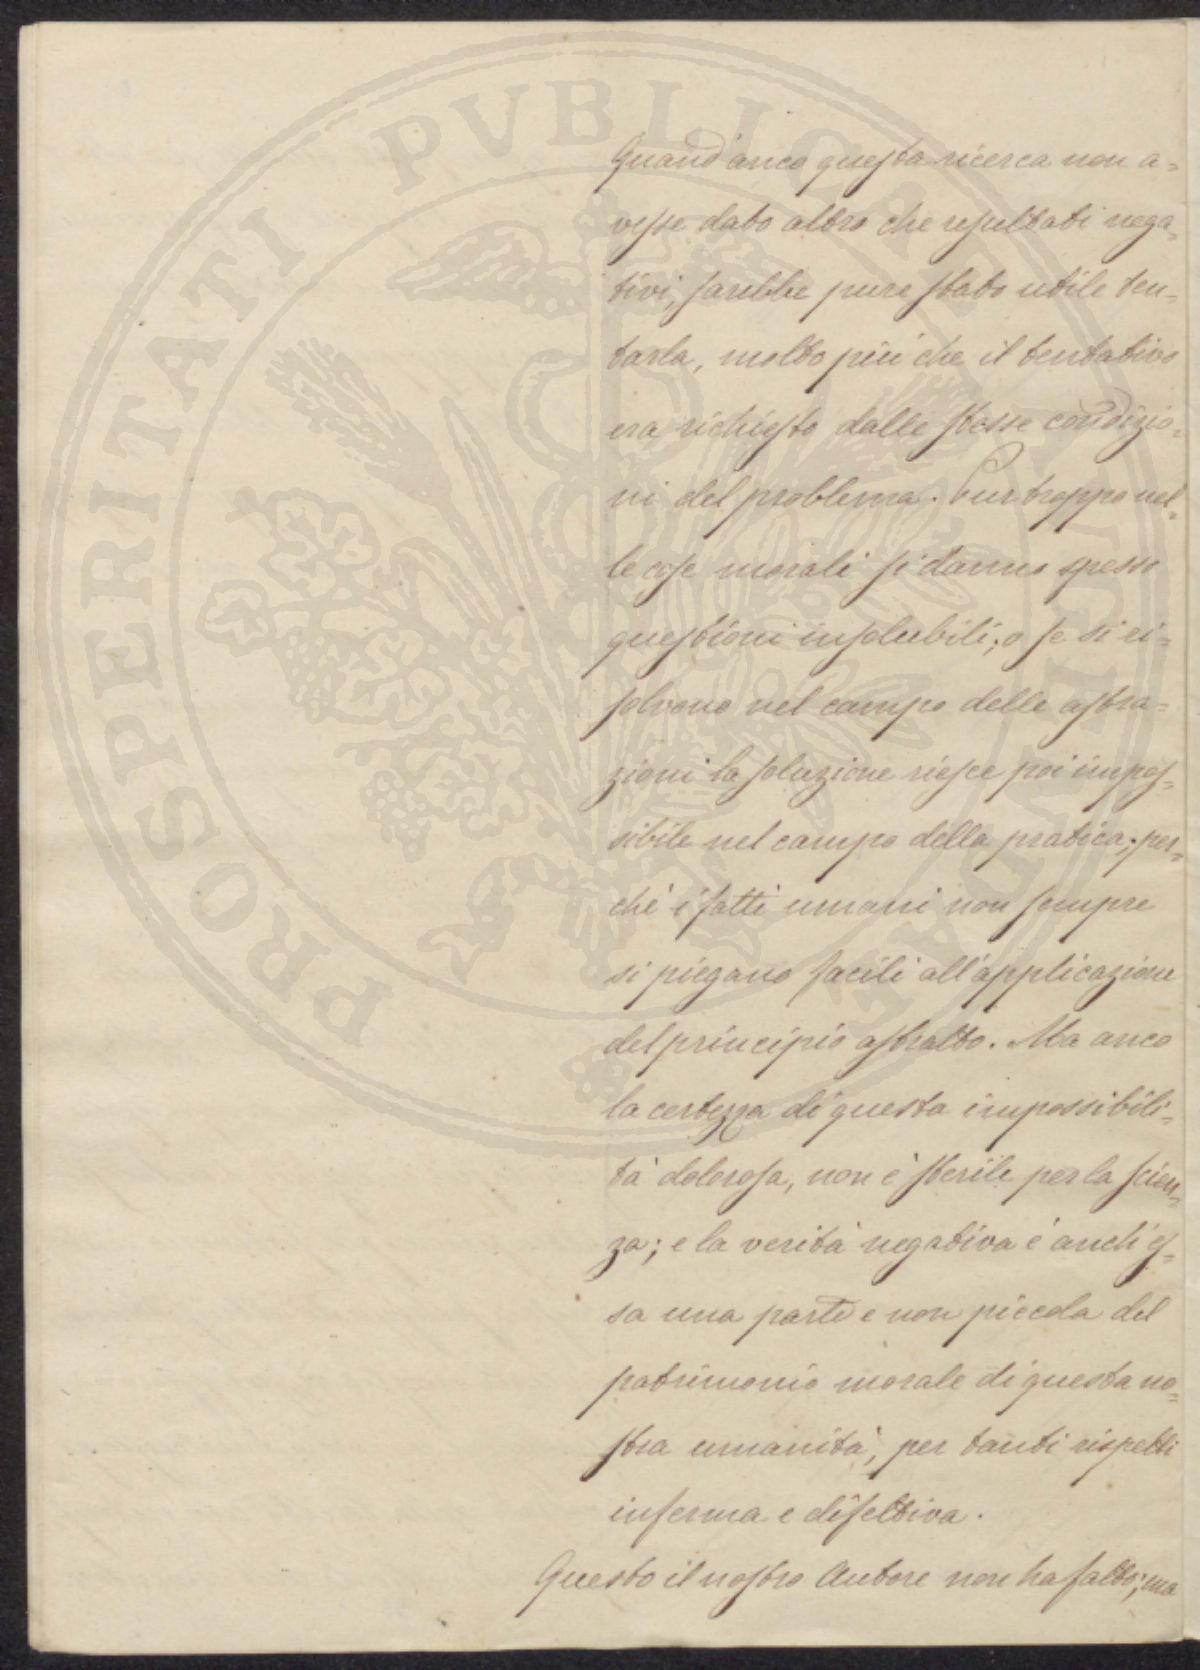 PROSPERITATI PVBLICAE AVGENDAE
Quand'anco questa ricerca non a=
vesse dato altro che resultati nega=
tivi, sarebbe pure stato utile ten=
tarla, molto più che il tentativo
era richiesto dalle stesse condizio=
ni del problema. Purtroppo nel=
le cose morali si danno spesso
questioni insolubili; o se si ri=
solvono nel campo delle astra=
zioni la soluzione riesce poi impos=
sibile nel campo della pratica; per=
chè i fatti umani non sempre
si piegano facili all'applicazione
del principio astratto. Ma anco
la certezza di questa impossibili=
tà dolorosa, non è sterile per la scien=
za; e la verità negativa è anch'es=
sa una parte e non piccola del
patrimonio morale di questa no=
stra umanità, per tanti rispetti
inferma e difettiva.
Questo il nostro Autore non ha fatto; ma